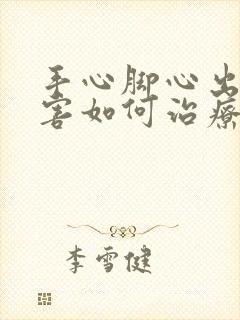 手心脚心出
害如何治疗
李雪健